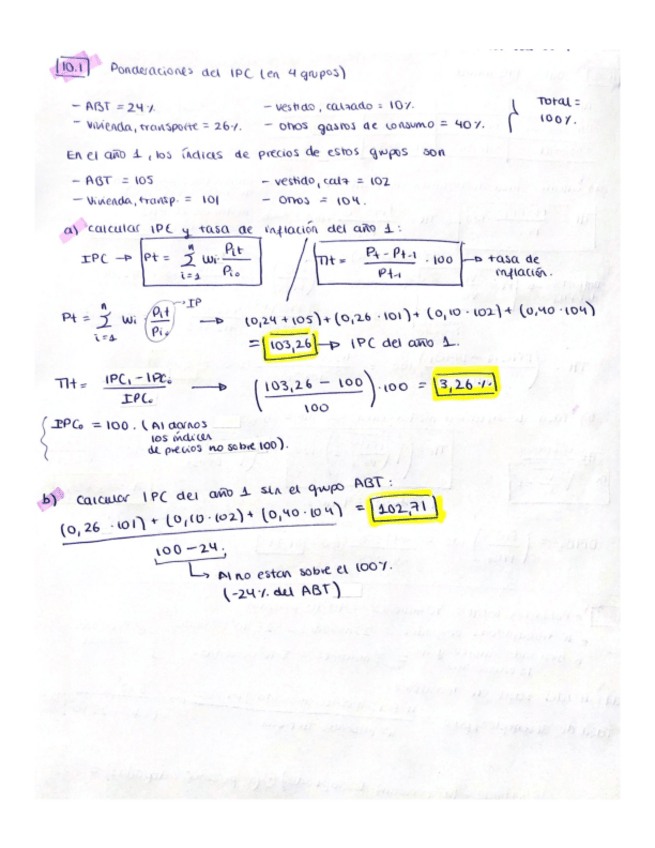 10.1 Ponderaciones del IPC (en 4 grupos)
- ABT = 24% - vestido, calzado = 10% Total =
- vivienda, transporte = 26% - otros gastos de consumo = 40%. 100%.
En el año 1, los índices de precios de estos grupos son
- ABT = 105 - vestido, calz = 102
- Vivienda, transp. = 101 - otros = 104.
a) calcular IPC y tasa de inflación del año 1:
IPC → Pt = Σ n i=1 wi · Pit / Pio / Πt = Pt - Pt-1 / Pt-1 · 100 → tasa de inflación.
Pt = Σ n i=1 wi (Pit / Pio) → IP → (0,24 + 105) + (0,26 · 101) + (0,10 · 102) + (0,40 · 104)
= 103,26 → IPC del año 1.
Πt = IPC1 - IPC0 / IPC0 → (103,26 - 100 / 100) · 100 = 3,26%
IPC0 = 100. (Al darnos
los índices
de precios no sobre 100).
b) calcular IPC del año 1 sin el grupo ABT:
(0,26 · 101) + (0,10 · 102) + (0,40 · 104) = 102,71
100 - 24
↳ Al no estan sobre el 100%.
(-24% del ABT)